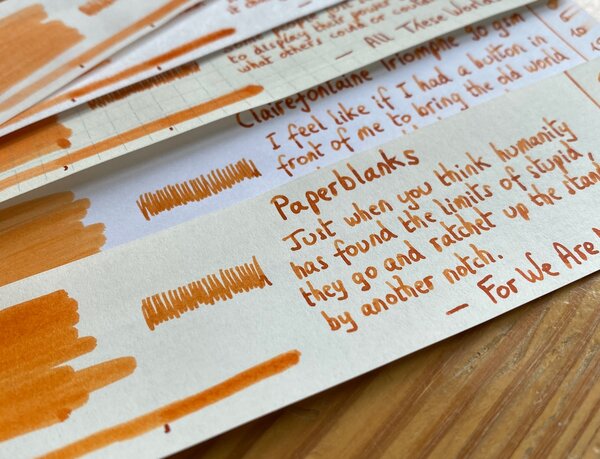 to display their power
what others count or
— All These Worlds
Clairefontaine Triomphe 90 gsm
I feel like if I had a button in
front of me to bring the old world
Paperblanks
Just when you think humanity
has found the limits of stupid,
they go and ratchet up the
by another notch.
— For We Are